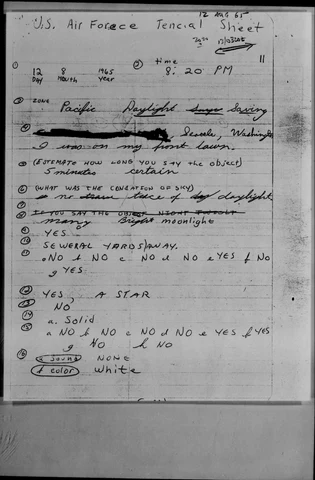 12 AUG 65
U.S. Air Foreace Tencial Sheet
11
① ② time
12 8 1965 8:20 PM
DAY MONTH year
③ ZONE
Pacific Daylight Saving
④ Seattle, Washingt
I was on my front lawn.
⑤ (ESTEMATE HOW LONG YOU SAY the object)
5 minutes certain
⑥ (WHAT WAS THE CONDATION OF SKY)
no trace of daylight
⑦
⑧ IF YOU SAY THE OBJECT NIGHT
many Bright moonlight
⑨ YES
⑩ SEWERAL YARDS AWAY.
⑪ a NO b NO c NO d NO e YES f NO
g YES
⑫ YES, A STAR
⑬ NO
⑭ a. Solid
⑮ a NO b NO c NO d NO e YES f YES
g NO h NO
⑯ a sound NONE
b color White